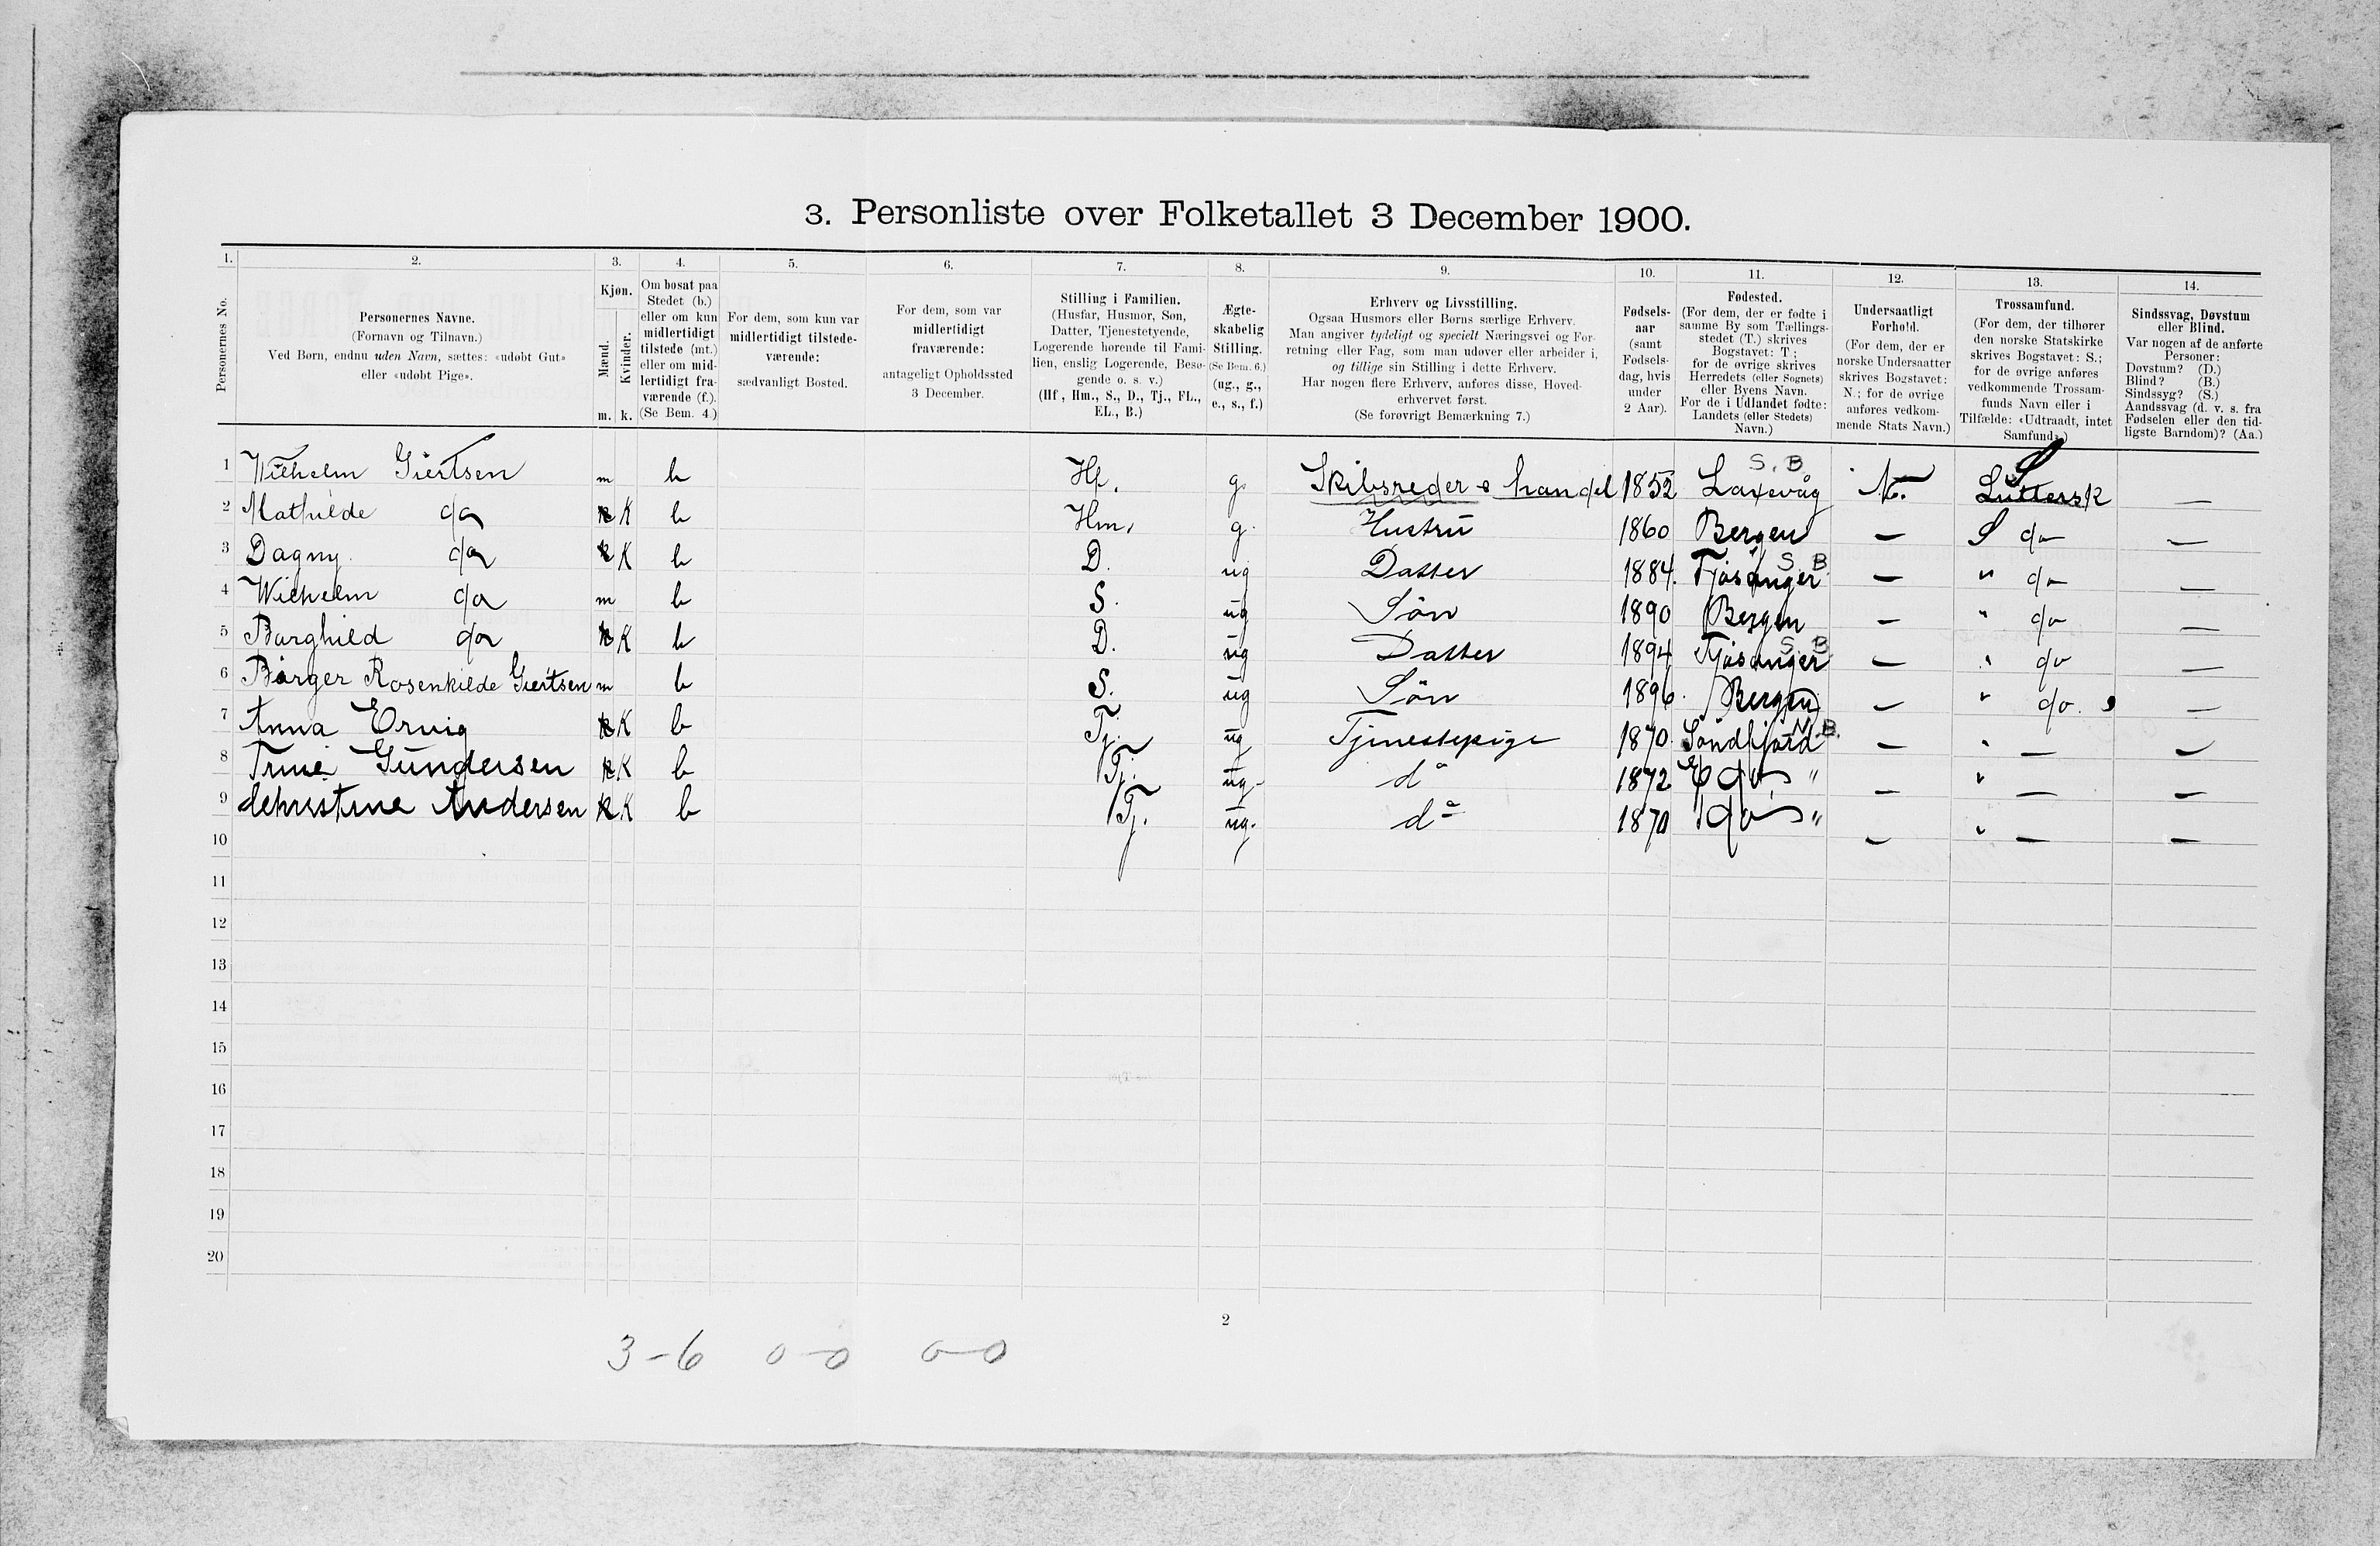 3. Personliste over Folketallet 3 December 1900.
1. 2. 3. 4. 5. 6. 7. 8. 9. 10. 11. 12. 13. 14.
Personernes No.
Personernes Navne.
(Fornavn og Tilnavn.)
Ved Børn, endnu uden Navn, sættes: «udøbt Gut»
eller «udøbt Pige».
Kjøn.
Mænd.
Kvinder.
m. k.
Om bosat paa
Stedet (b.)
eller om kun
midlertidigt
tilstede (mt.)
eller om mid-
lertidigt fra-
værende (f.).
(Se Bem. 4.)
For dem, som kun var
midlertidigt tilstede-
værende:
sædvanligt Bosted.
For dem, som var
midlertidigt
fraværende:
antageligt Opholdssted
3 December.
Stilling i Familien.
(Husfar, Husmor, Søn,
Datter, Tjenestetyende,
Logerende hørende til Fami-
lien, enslig Logerende, Besø-
gende o. s. v.)
(Hf., Hm., S., D., Tj., FL.,
EL., B.)
Ægte-
skabelig
Stilling.
(Se Bem. 6.)
(ug., g.,
e., s., f.)
Erhverv og Livsstilling.
Ogsaa Husmors eller Børns særlige Erhverv.
Man angiver tydeligt og specielt Næringsvei og For-
retning eller Fag, som man udøver eller arbeider i,
og tillige sin Stilling i dette Erhverv.
Har nogen flere Erhverv, anføres disse, Hoved-
erhvervet først.
(Se forøvrigt Bemærkning 7.)
Fødsels-
aar
(samt
Fødsels-
dag, hvis
under
2 Aar).
Fødested.
(For dem, der er fødte i
samme By som Tællings-
stedet (T.) skrives
Bogstavet: T;
for de øvrige skrives
Herredets (eller Sognets)
eller Byens Navn.
For de i Udlandet fødte:
Landets (eller Stedets)
Navn.)
Undersaatligt
Forhold.
(For dem, der er
norske Undersaatter
skrives Bogstavet:
N.; for de øvrige
anføres vedkom-
mende Stats Navn.)
Trossamfund.
(For dem, der tilhører
den norske Statskirke
skrives Bogstavet: S.;
for de øvrige anføres
vedkommende Trossam-
funds Navn eller i
Tilfælde: «Udtraadt, intet
Samfund».)
Sindssvag, Døvstum
eller Blind.
Var nogen af de anførte
Personer:
Døvstum? (D.)
Blind? (B.)
Sindssyg? (S.)
Aandssvag (d. v. s. fra
Fødselen eller den tid-
ligste Barndom)? (Aa.)
S. B. S
1 Wilhelm Giertsen m b Hf. g. Skibsreder & handel 1852 Laxevåg N. Luttersk —
2 Mathilde do k K b Hm. g. Hustru 1860 Bergen — S do —
3 Dagny do k K b D. ug Datter 1884. Fjösanger S. B. — " do —
4 Wilhelm do m b S. ug Sön 1890 Bergen — " do —
5 Borghild do k K b D. ug Datter 1894 Fjösanger S. B. — " do —
6 Börger Rosenkilde Giertsen m b S. ug Sön 1896. Bergen — " do. —
7 Anna Ervig k K b Tj. ug Tjenestepige 1870 Söndfjord N. B. — " — —
8 Trine Gundersen k K b Tj. ug do 1872 do " — " — —
9 Christine Andersen k K b Tj. ug. do 1870 do " — " — —
10
11
12
13
14
15
16
17
18
19
20
2
3-6 0-0 0-0